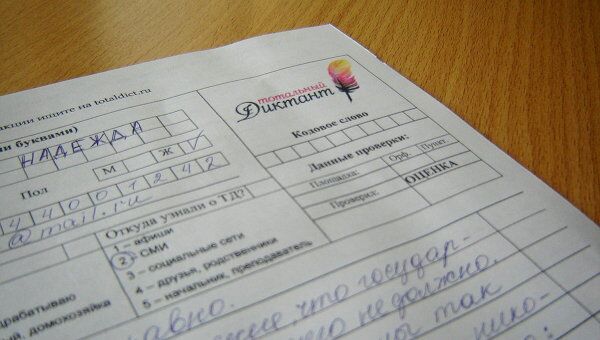 акции ищите на totaldict.ru
тотальный
Диктант
буквами)
НАДЕЖДА
Кодовое слово
Пол М Ж ✓
Данные проверки:
Орф. Пункт
Площадка:
ОЦЕНКА
Проверил:
4 4 0 0 1 2 4 2
@mail.ru
Откуда узнали о ТД?
1 – афиши
2 – СМИ
3 – социальные сети
4 – друзья, родственники
5 – начальник, преподаватель
домохозяйка
что государ-
не должно.
так
нико-